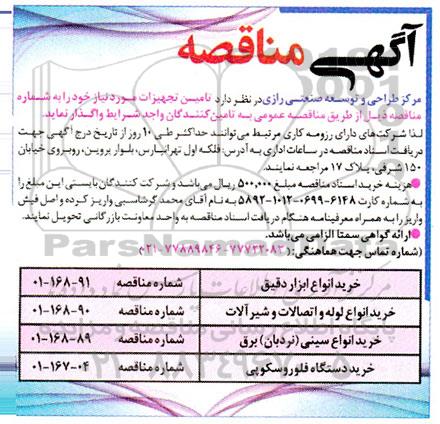 آگهی مناقصه
مرکز طراحی و توسعه صنعتی رازی در نظر دارد تامین تجهیزات مورد نیاز خود را به شماره
مناقصه ذیل از طریق مناقصه عمومی به تامین کنندگان واجد شرایط واگذار نماید.
لذا شرکت‌های دارای رزومه کاری مرتبط می‌توانند حداکثر طی ۱۰ روز از تاریخ درج آگهی جهت
دریافت اسناد مناقصه در ساعات اداری به آدرس: فلکه اول تهرانپارس، بلوار پروین، روبروی خیابان
۱۵۰ شرقی، پلاک ۱۷ مراجعه نمایند.
●هزینه خرید اسناد مناقصه مبلغ ۵۰۰,۰۰۰ ریال می‌باشد و شرکت کنندگان بایستی این مبلغ را
به شماره کارت ۶۱۴۸-۰۶۹۹-۱۰۱۲-۵۸۹۲ به نام آقای محمد گرشاسبی واریز کرده و اصل فیش
واریز را به همراه معرفینامه هنگام دریافت اسناد مناقصه به واحد معاونت بازرگانی تحویل نمایند.
●ارائه گواهی سمتا الزامی می‌باشد.
(شماره تماس جهت هماهنگی: ۷۷۷۲۲۰۸۳-۷۷۸۸۹۸۴۶-۰۲۱)
خرید انواع ابزار دقیق شماره مناقصه ۹۱-۱۶۸-۰۱
خرید انواع لوله و اتصالات و شیرآلات شماره مناقصه ۹۰-۱۶۸-۰۱
خرید انواع سینی (نردبان) برق شماره مناقصه ۸۹-۱۶۸-۰۱
خرید دستگاه فلوروسکوپی شماره مناقصه ۰۴-۱۶۷-۰۱